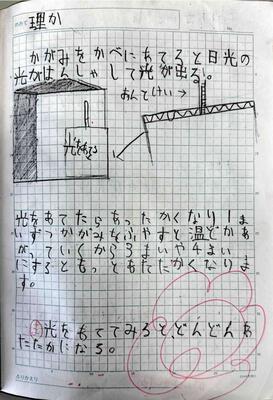 理か
かがみをかべにあてると日光の
光がはんしゃして光が出る。
おんどけい→
光をあてたらあったかくなり1ま
いずつかがみをふやすと温どがあ
がっていくから3まいや4まい
にするともっとあたたかくなりま
す。
ま 光をあててみると、どんどんあ
たたかになる。
ふりかえり